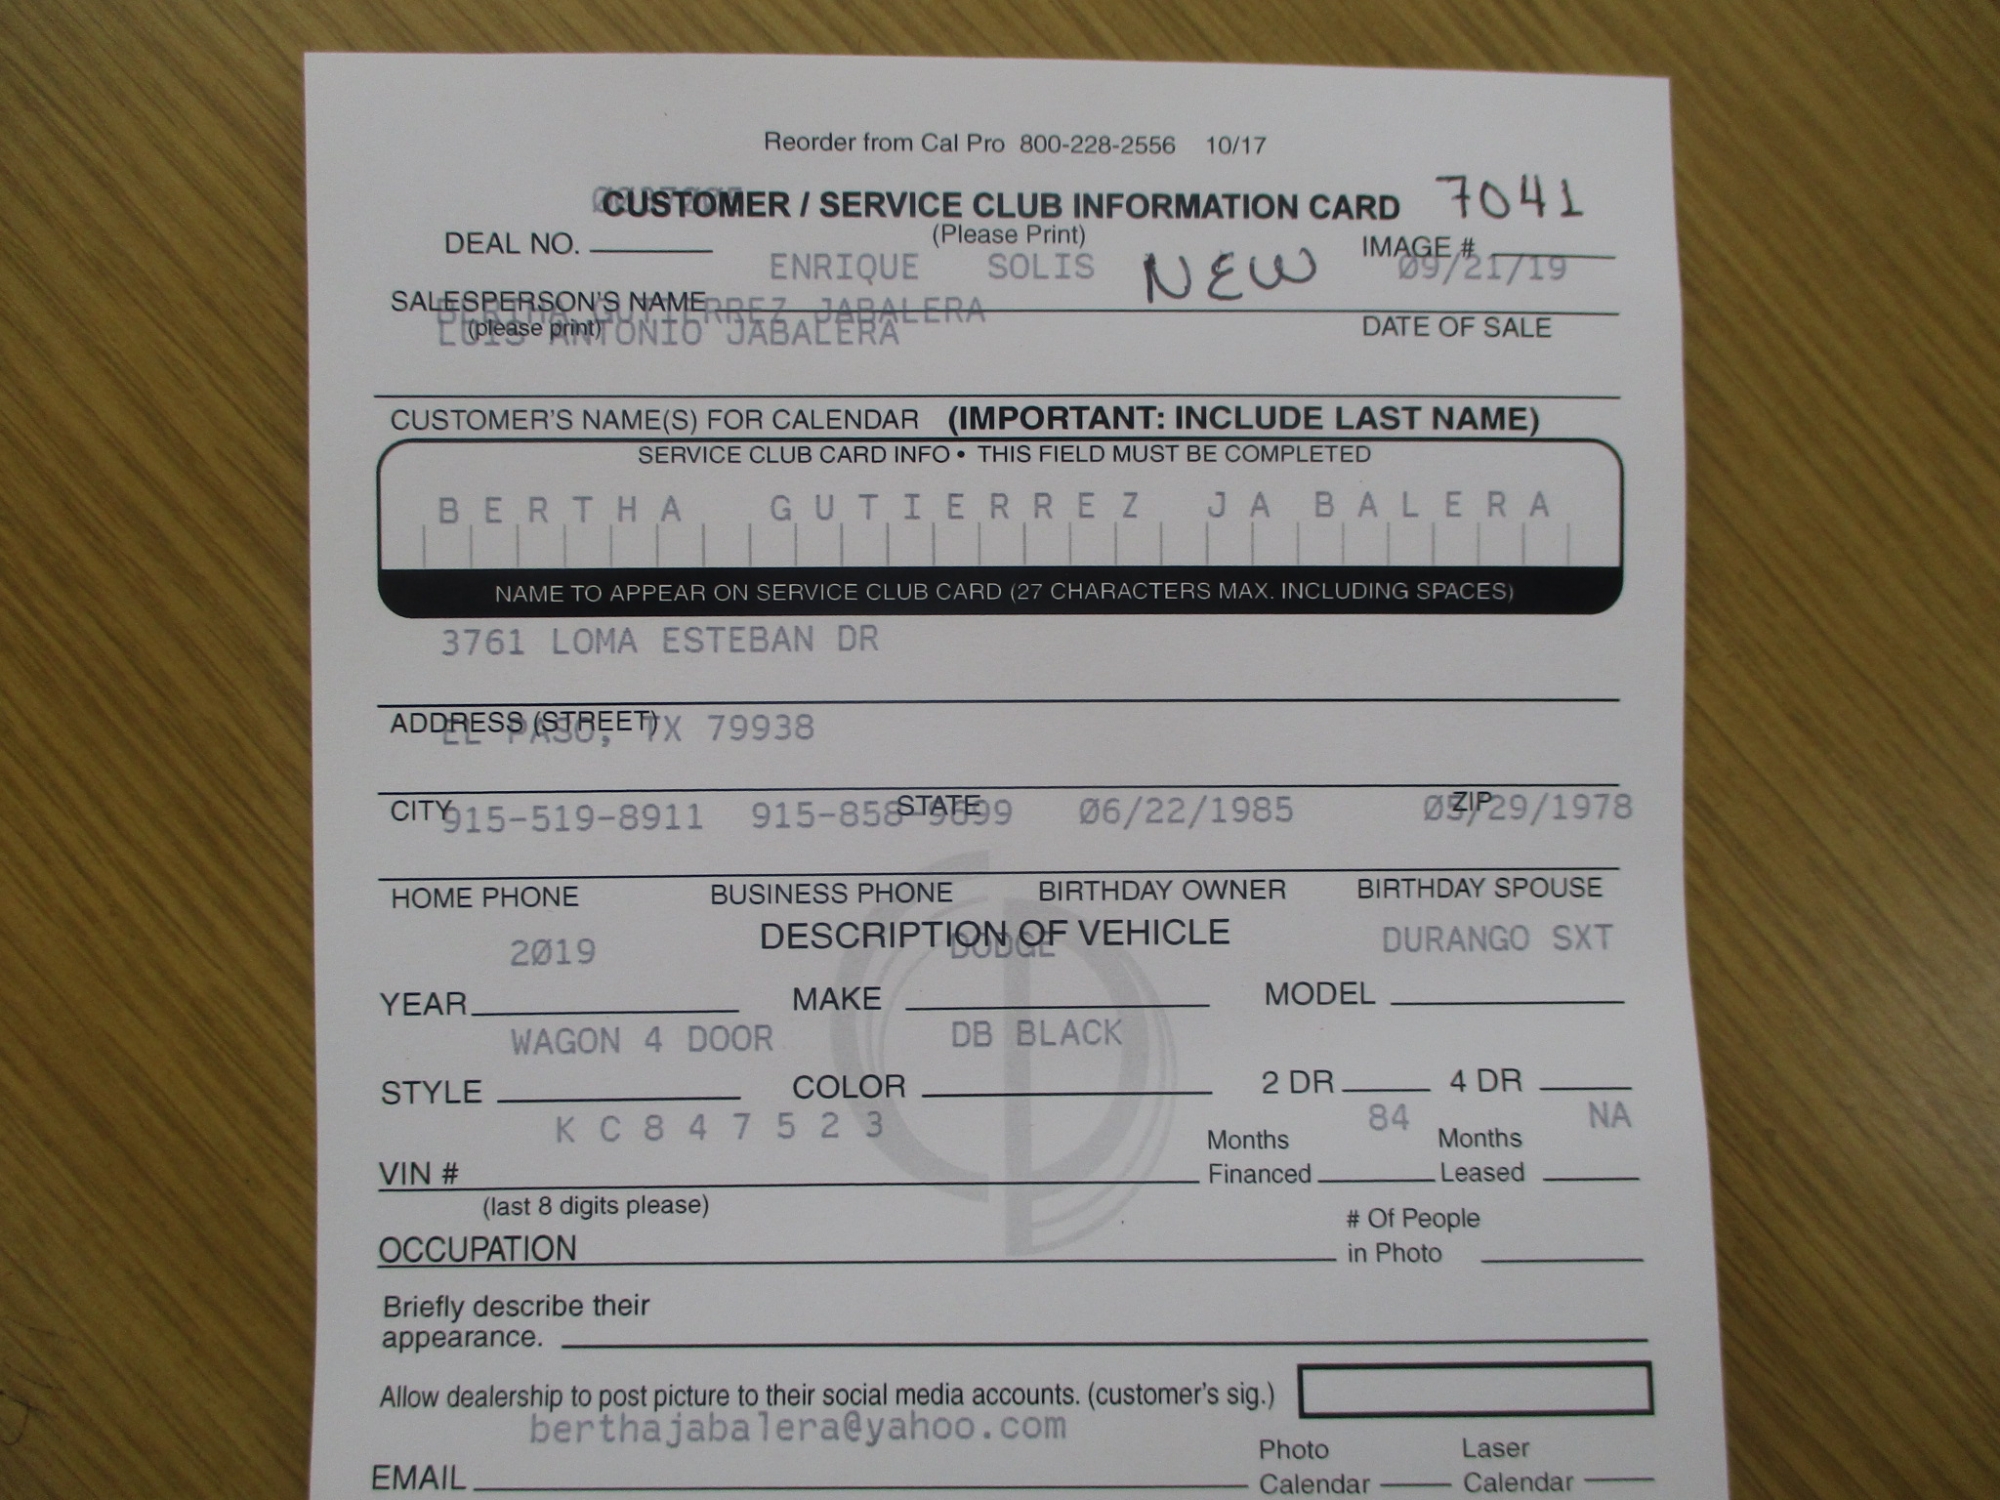 Reorder from Cal Pro 800-228-2556 10/17
CUSTOMER / SERVICE CLUB INFORMATION CARD 7041
(Please Print)
DEAL NO. IMAGE #
ENRIQUE SOLIS NEW 09/21/19
SALESPERSON'S NAME
BERTHA GUTIERREZ JABALERA
(please print) DATE OF SALE
LUIS ANTONIO JABALERA
CUSTOMER'S NAME(S) FOR CALENDAR (IMPORTANT: INCLUDE LAST NAME)
SERVICE CLUB CARD INFO • THIS FIELD MUST BE COMPLETED
BERTHA GUTIERREZ JABALERA
NAME TO APPEAR ON SERVICE CLUB CARD (27 CHARACTERS MAX. INCLUDING SPACES)
3761 LOMA ESTEBAN DR
ADDRESS (STREET)
EL PASO, TX 79938
CITY STATE ZIP
915-519-8911 915-858-9699 06/22/1985 05/29/1978
HOME PHONE BUSINESS PHONE BIRTHDAY OWNER BIRTHDAY SPOUSE
DESCRIPTION OF VEHICLE
2019 DODGE DURANGO SXT
YEAR MAKE MODEL
WAGON 4 DOOR DB BLACK
STYLE COLOR 2 DR 4 DR
KC847523 84 NA
VIN # Months Financed Months Leased
(last 8 digits please)
OCCUPATION # Of People in Photo
Briefly describe their
appearance.
Allow dealership to post picture to their social media accounts. (customer's sig.)
berthajabalera@yahoo.com
EMAIL Photo Calendar Laser Calendar